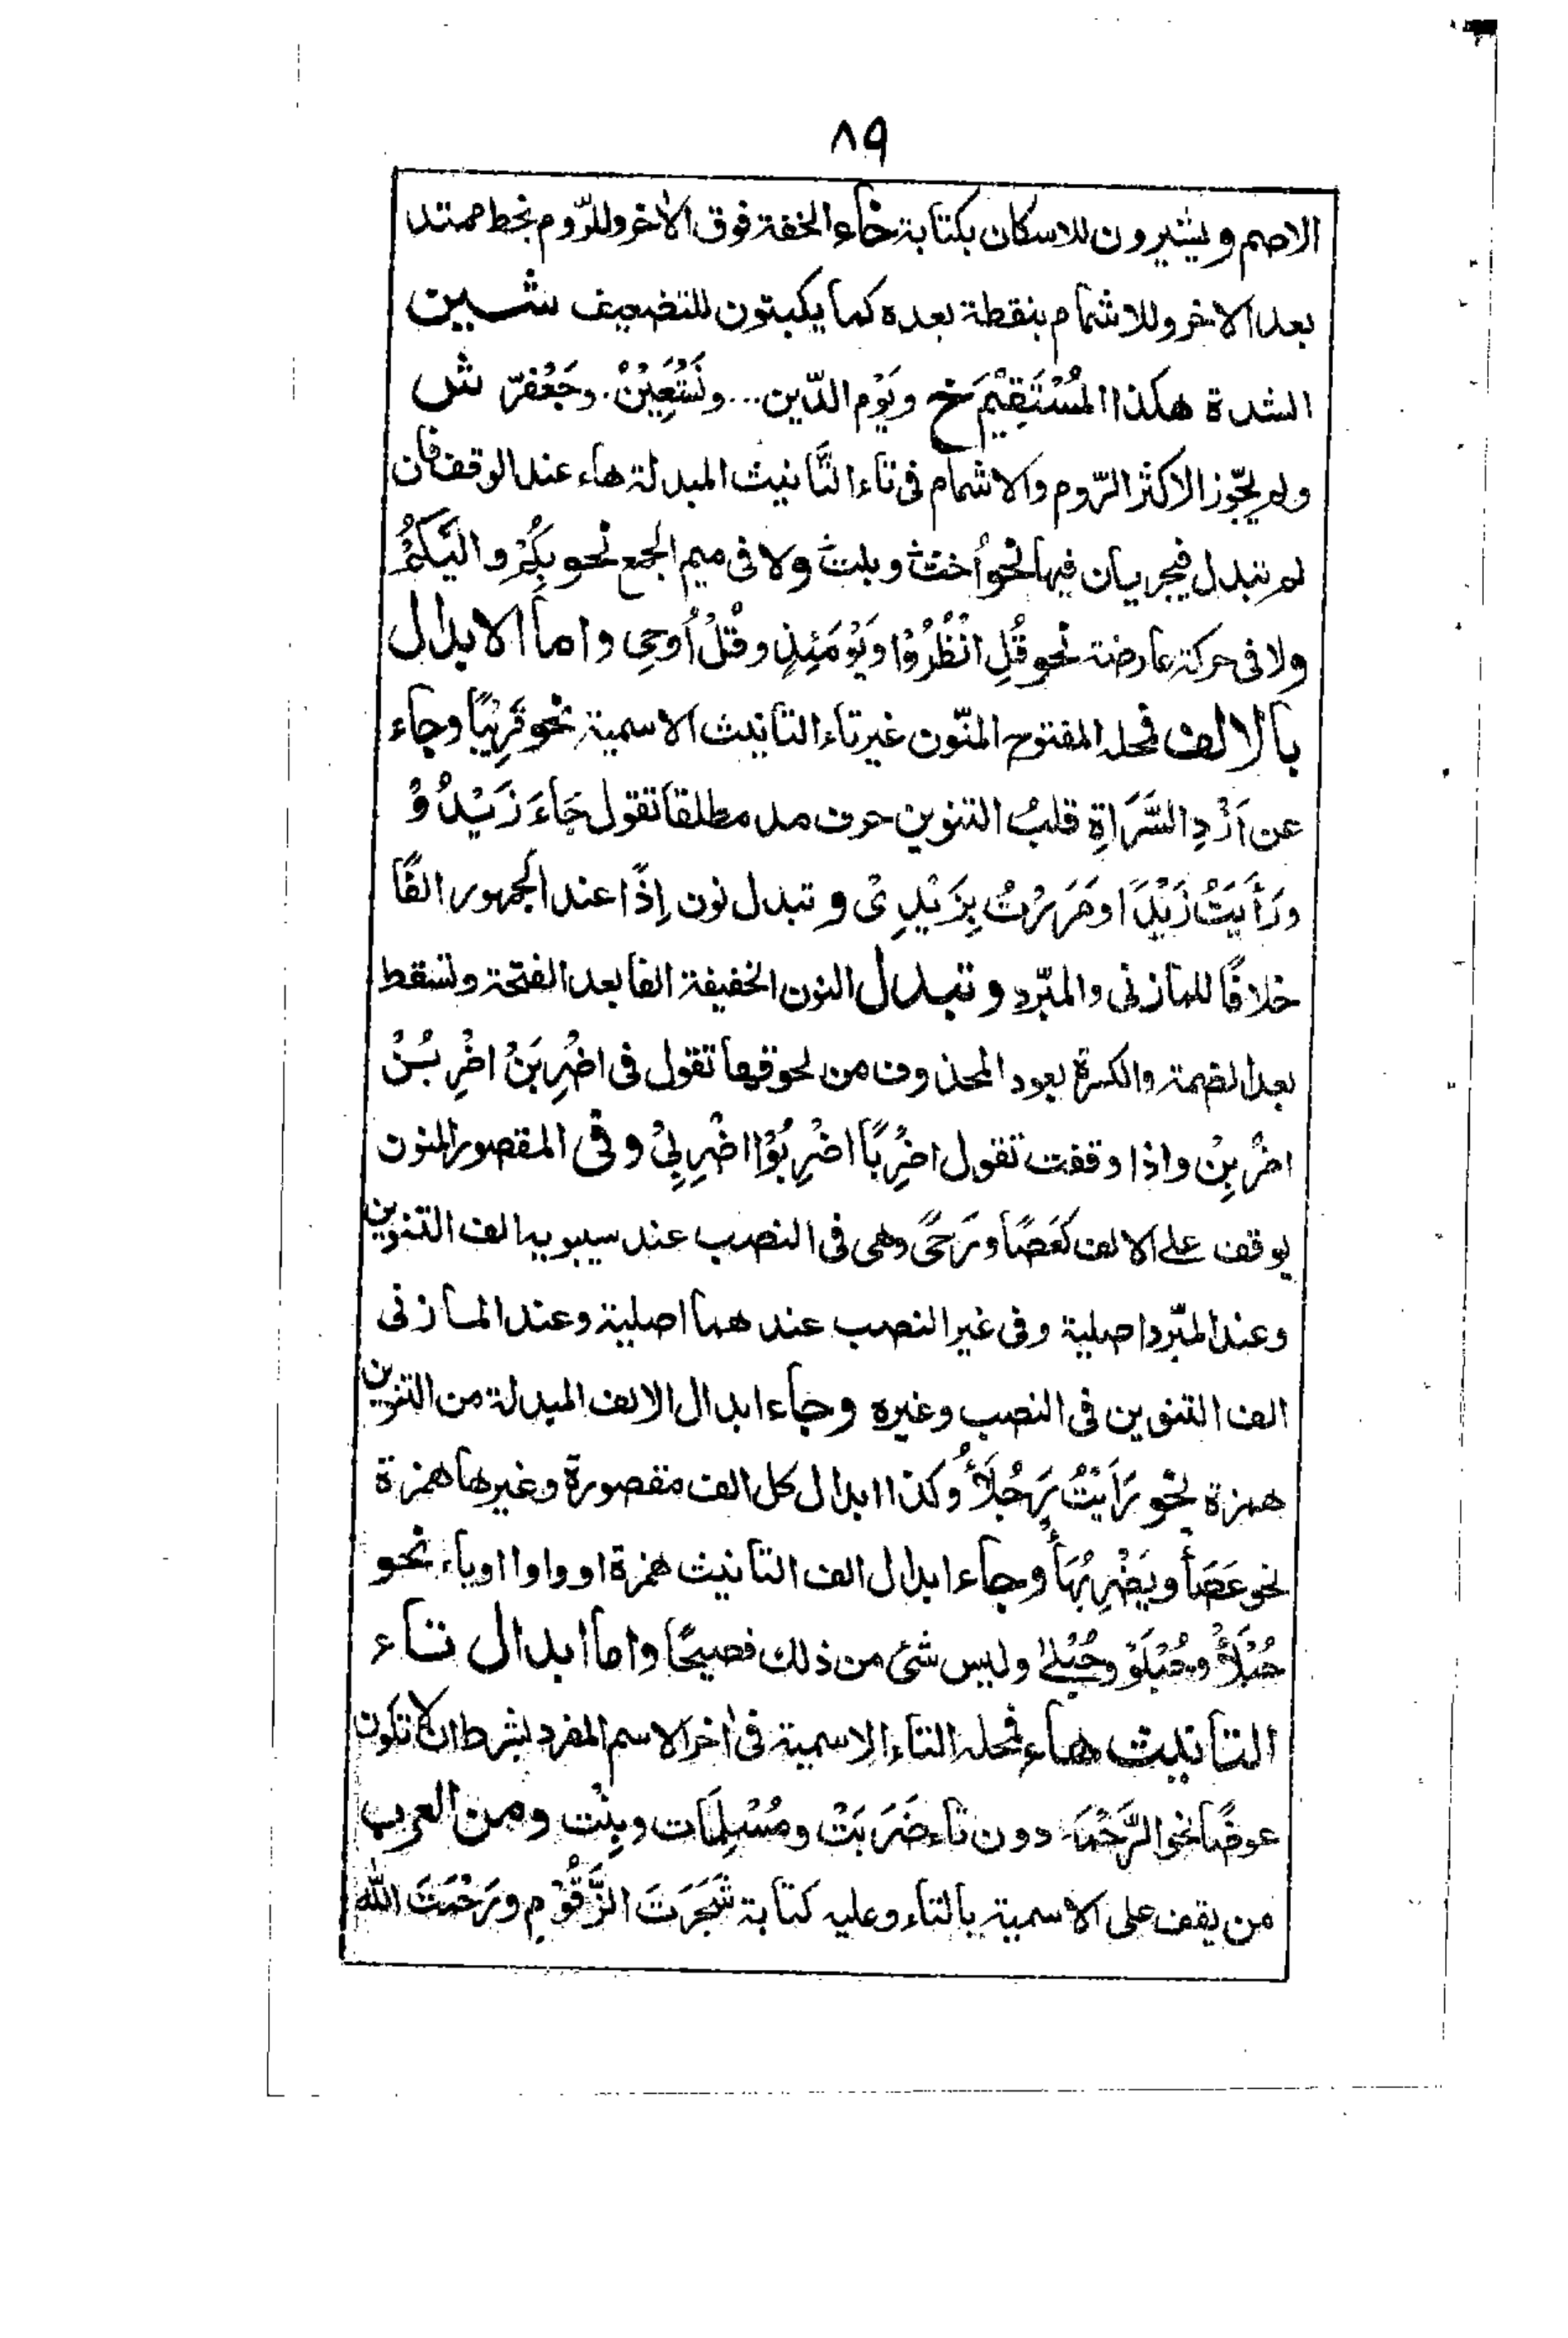 ٨٩
الاصم ويشيرون للاسكان بكتابة خاء الخفة فوق الاٰخر وللرّوم بخط ممتد
بعد الاخر وللاشمام بنقطة بعده كما يكبتون للتضعيف شـــين
الشدة هكذا المُسْتَقِيْمَ خ ويَوْم الدّين... ونَسْتَعِيْنْ. وجَعْفرّ ش
ولم يجّوز الاكثر الرّوم والاشمام فى تاء التَّانيث المبدلة هاء عند الوقف فان
لم تبدل فيجريان فيها نحو اُخت وبنت ولا فى ميم الجمع نحو بِكُمْ واليَكُمْ
ولا فى حركة عارضة نحو قُلِ انْظُرُوْا وَيَوْمَئِذٍ وقُلُ اُوحِى واما الابدال
بالالف فمحله المفتوح المنّون غير تاء التانيث الاسمية نحو قَرِيْبًا وجاء
عن اَزْدِ السَّرَاةِ قلبُ التنوين حرف مد مطلقا تقول جَاءَ زَيْدُوْ
ورَأَيتُ زَيْدًا ومَرَرْتُ بِزَيْدِىْ وتبدل نون اِذًا عند الجمهور الفًا
خلافًا للمازنى والمبّرد وتبدل النون الخفيفة الفا بعد الفتحة وتسقط
بعد الضمة والكسرة بعود المحذوف من لحوقها تقول فى اضْرِبَنْ اضْرِبُنْ
اضْرِبِنْ واذا وقفت تقول اضْرِبًا اضْرِبُوْا اضْرِبِىْ وفى المقصور المنون
يوقف على الالف كَعَصًا ورَحًى وهى فى النصب عند سيبويه الف التنوين
وعند المبّرد اصلية وفى غير النصب عند هما اصلية وعند المازنى
الف التنوين فى النصب وغيره وجاء ابدال الالف المبدلة من التنوين
همزة نحو رَاَيْتُ رَجُلَأْ وكذا ابدال كل الف مقصورة وغيرها همزة
نحو عَصَأْ ويَضْرِبُهَأْ وجاء ابدال الف التانيث همزة او واوا او ياء نحو
حُبْلَأْ وحُبْلَوْ وحُبْلَىْ وليس شئ من ذلك فصيحًا واما ابدال تاء
التانيث هاء فمحله التاء الاسمية فى اٰخر الاسم المفرد بشرط ان لا تكون
عوضًا نحو الرَّحْمَة دون تاء ضَرَبَتْ ومُسْلِمَات وبِنْت ومن العرب
من يقف على الاسمية بالتاء وعليه كتابة شَجَرَتَ الزَّقُوْمِ ورَحْمَتَ الله